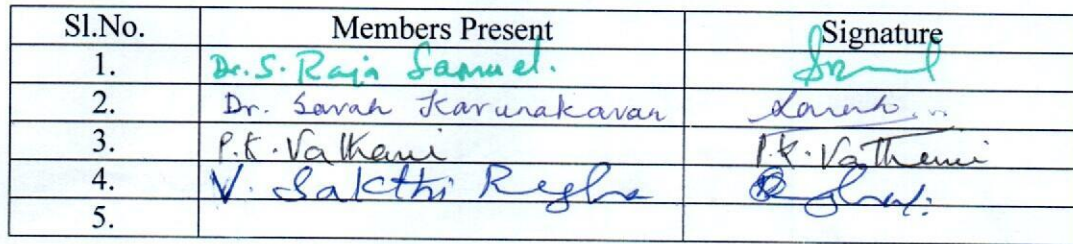 Sl.No. Members Present Signature
1. Dr. S. Raja Samuel.
2. Dr. Sarah Karunakaran Sarah
3. P.K. Vathani P.K. Vathani
4. V. Sakthi Regha
5.